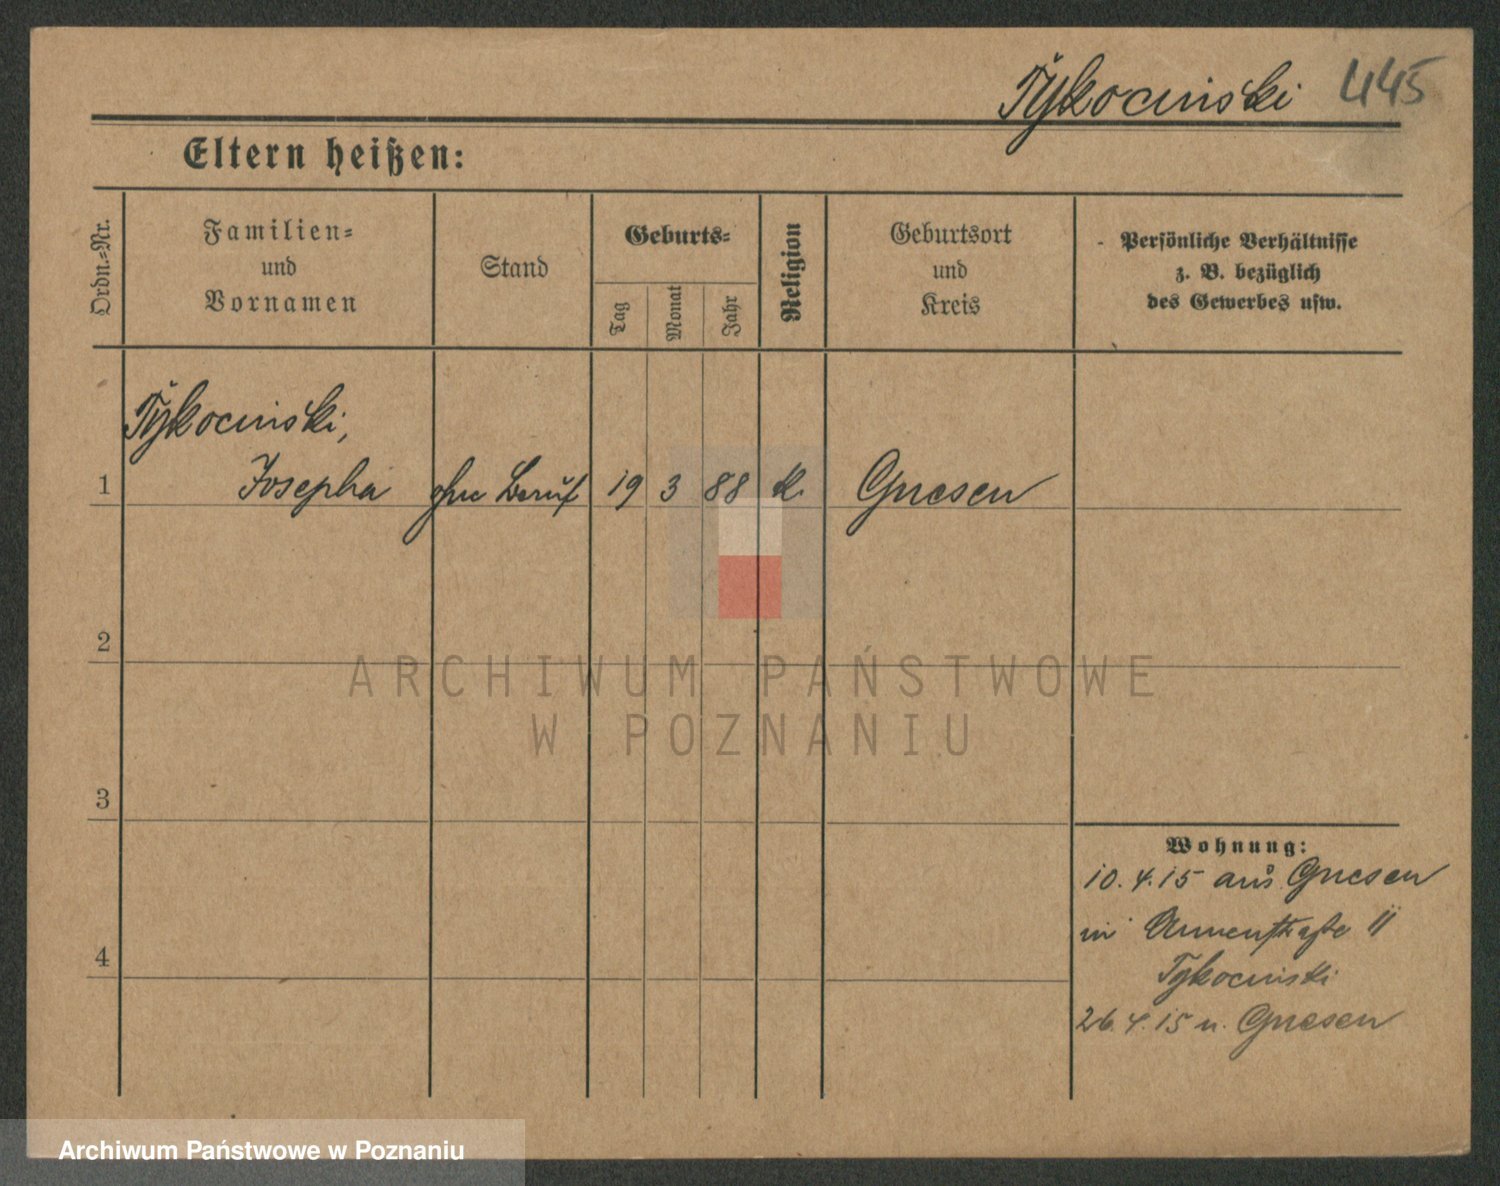 Tykocinski 445
Eltern heißen:
Ordn.-Nr.
Familien-
und
Vornamen
Stand
Geburts-
Tag
Monat
Jahr
Religion
Geburtsort
und
Kreis
Persönliche Verhältnisse
z. B. bezüglich
des Gewerbes usw.
Tykocinski,
1 Josepha ohne Beruf 19 3 88 k. Gnesen
2
3
4
Wohnung:
10.4.15 aus Gnesen
in Annenstraße 11
Tykocinski
26.4.15 n. Gnesen
ARCHIWUM PAŃSTWOWE
W POZNANIU
Archiwum Państwowe w Poznaniu